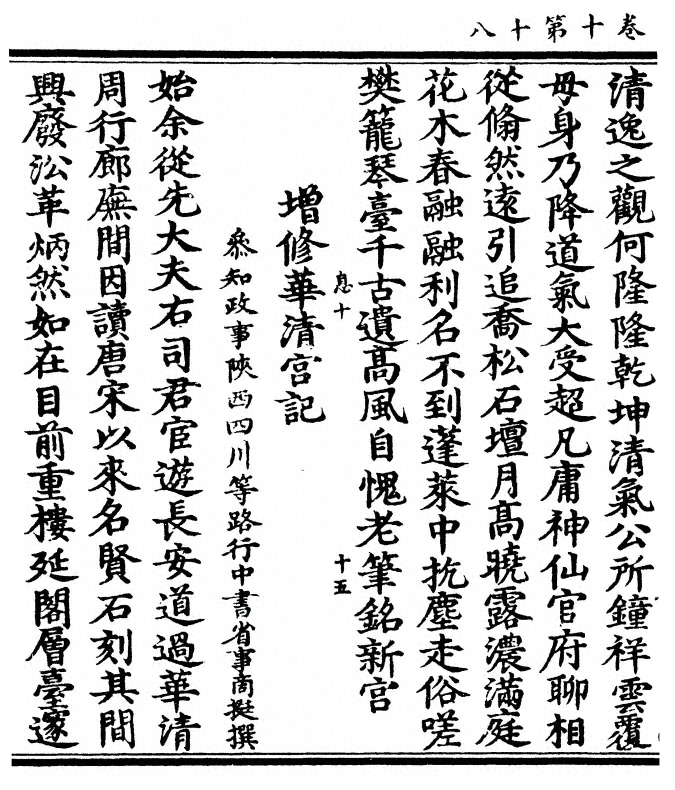 卷十第十八
清逸之觀何隆隆乾坤清氣公所鐘祥雲覆
毋身乃降道氣大受超凡庸神仙官府聊相
從翛然遠引追喬松石壇月高曉露濃滿庭
花木春融融利名不到蓬萊中抗塵走俗嗟
樊籠琴臺千古遺高風自愧老筆銘新宮
息十
十五
增修華清宮記
叅知政事陝西四川等路行中書省事商挺撰
始余從先大夫右司君宦遊長安道過華清
周行廊廡間因讀唐宋以來名賢石刻其間
興廢沿革炳然如在目前重樓延閣層臺邃